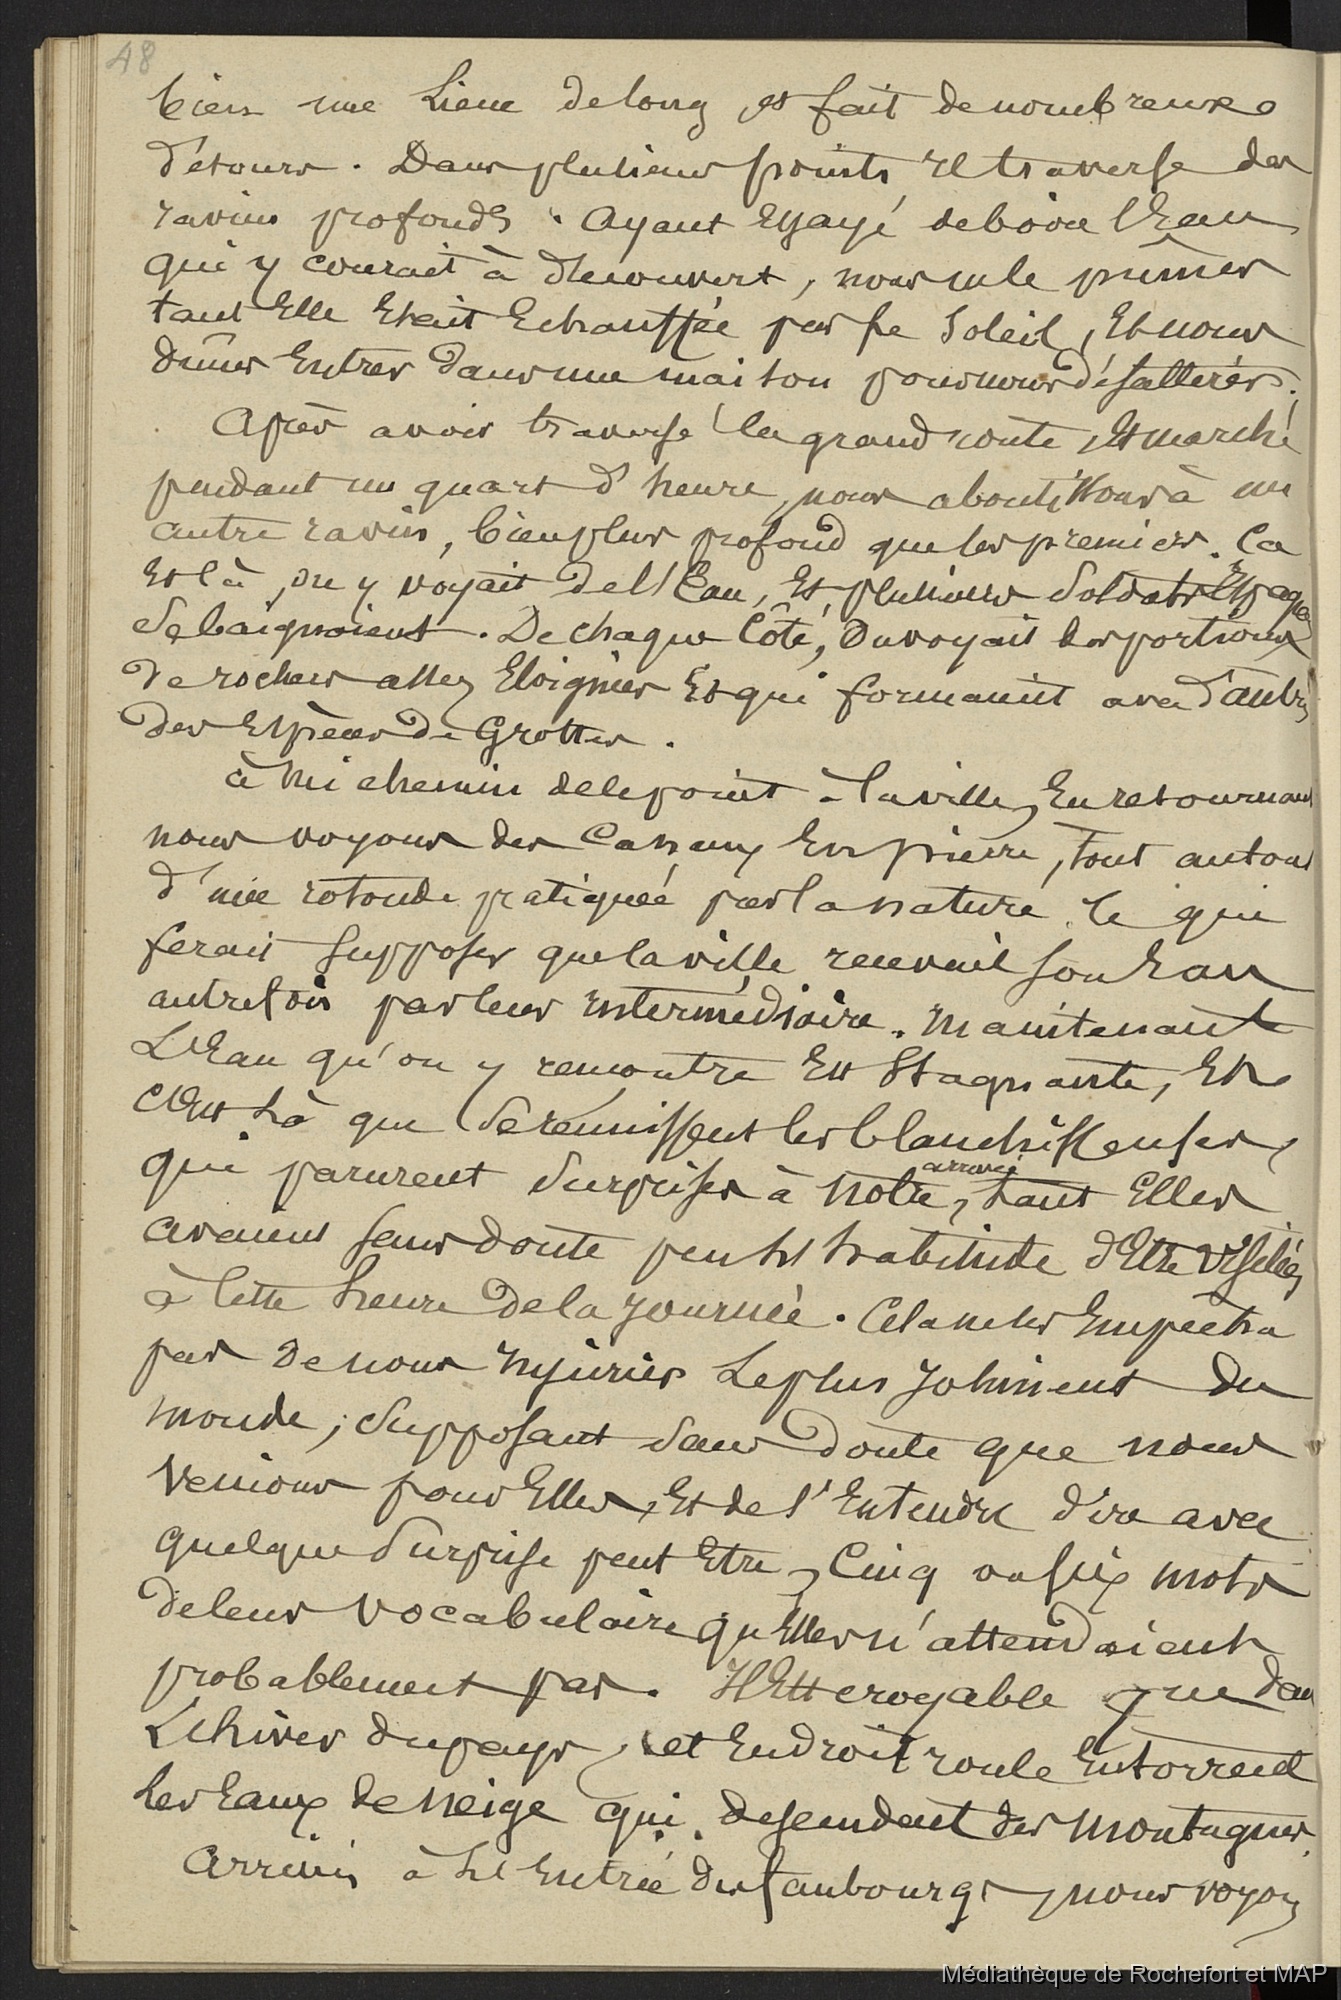 48
bien une Lieue de long et fait de nombreuxe
détours. Dans plusieurs points, il traverse des
ravins profonds. Ayant essayé de boire l'Eau
qui y courait à découvert, nous ne le pûmes
tant Elle Etait Echauffée par le Soleil, Et nous
dûmes Entrer dans une maison pour nous désaltérér.
Après avoir traversé la grand route, Et marché
pendant un quart d'heure, nous aboutissons à un
autre ravin, bien plus profond que les premiers. Ca
Et là, on y voyait de l'Eau, Et plusieurs Soldats Espagnols
Se baignaient. De chaque Côté, On voyait des portions
de rochers assez Eloignés Et qui formaient avec d'autres
des Espèces de Grottes.
à mi chemin de le point à la ville, En retournant
nous voyons des Canaux En pierre, tout autour
d'une rotonde pratiquée par la nature, Ce qui
ferait Supposer que la ville recevait son Eau
autrefois par leur intermédiaire. Maintenant
L'Eau qu'on y rencontre Est Stagnante, Et
C'Est Là que Se réunissent les blanchisseuses,
qui parurent Surprises à notre arrivé, tant Elles
avaient sans doute peu l'habitude d'Etre visitées
à Cette heure de la journée. Cela ne les Empêcha
pas de nous injurier Le plus joliment du
monde, Supposant Sans doute que nous
Venions pour Elles, Et de s'Entendre dire avec
quelque Surprise peut Etre, Cinq ou six mots
de leur vocabulaire qu'Elles n'attendaient
probablement pas. Il Est croyable que dans
L'hiver du pays, cet Endroit roule En torrent
Les Eaux de neige qui descendent des Montagnes.
Arrivés à L'Entrée des faubourgs, nous voyons
Médiathèque de Rochefort et MAP